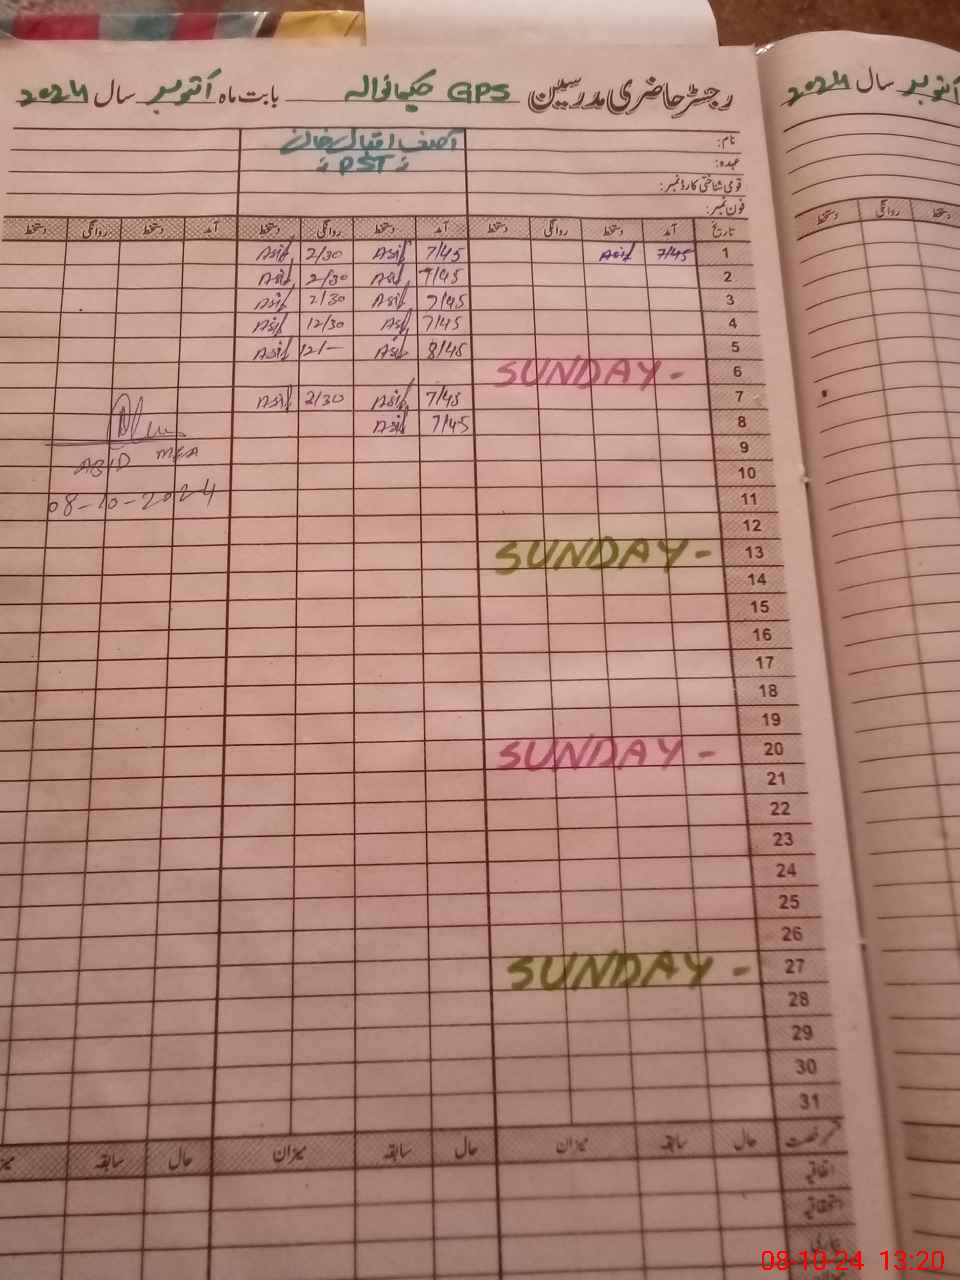 رجسٹر حاضری مدرسین GPS حکیمانوالہ بابت ماہ اکتوبر سال 2024
اکتوبر سال 2024
نام: آصف اقبال خان
عہدہ: PST
قومی شناختی کارڈ نمبر:
فون نمبر:
تاریخ آمد دستخط روانگی دستخط آمد دستخط روانگی دستخط آمد دستخط روانگی دستخط
دستخط روانگی دستخط
1 7/45 Asif 7/45 Asif 2/30 Asif
2 7/45 Asif 2/30 Asif
3 7/45 Asif 2/30 Asif
4 7/45 Asif 12/30 Asif
5 8/45 Asif 12/- Asif
6 SUNDAY -
7 7/45 Asif 2/30 Asif
8 7/45 Asif
ABID MEA
08-10-2024
9
10
11
12
13 SUNDAY -
14
15
16
17
18
19
20 SUNDAY -
21
22
23
24
25
26
27 SUNDAY -
28
29
30
31
قسم رخصت حال سابقہ میزان حال سابقہ میزان حال سابقہ
اتفاقیہ
استحقاقیہ
08-10-24 13:20